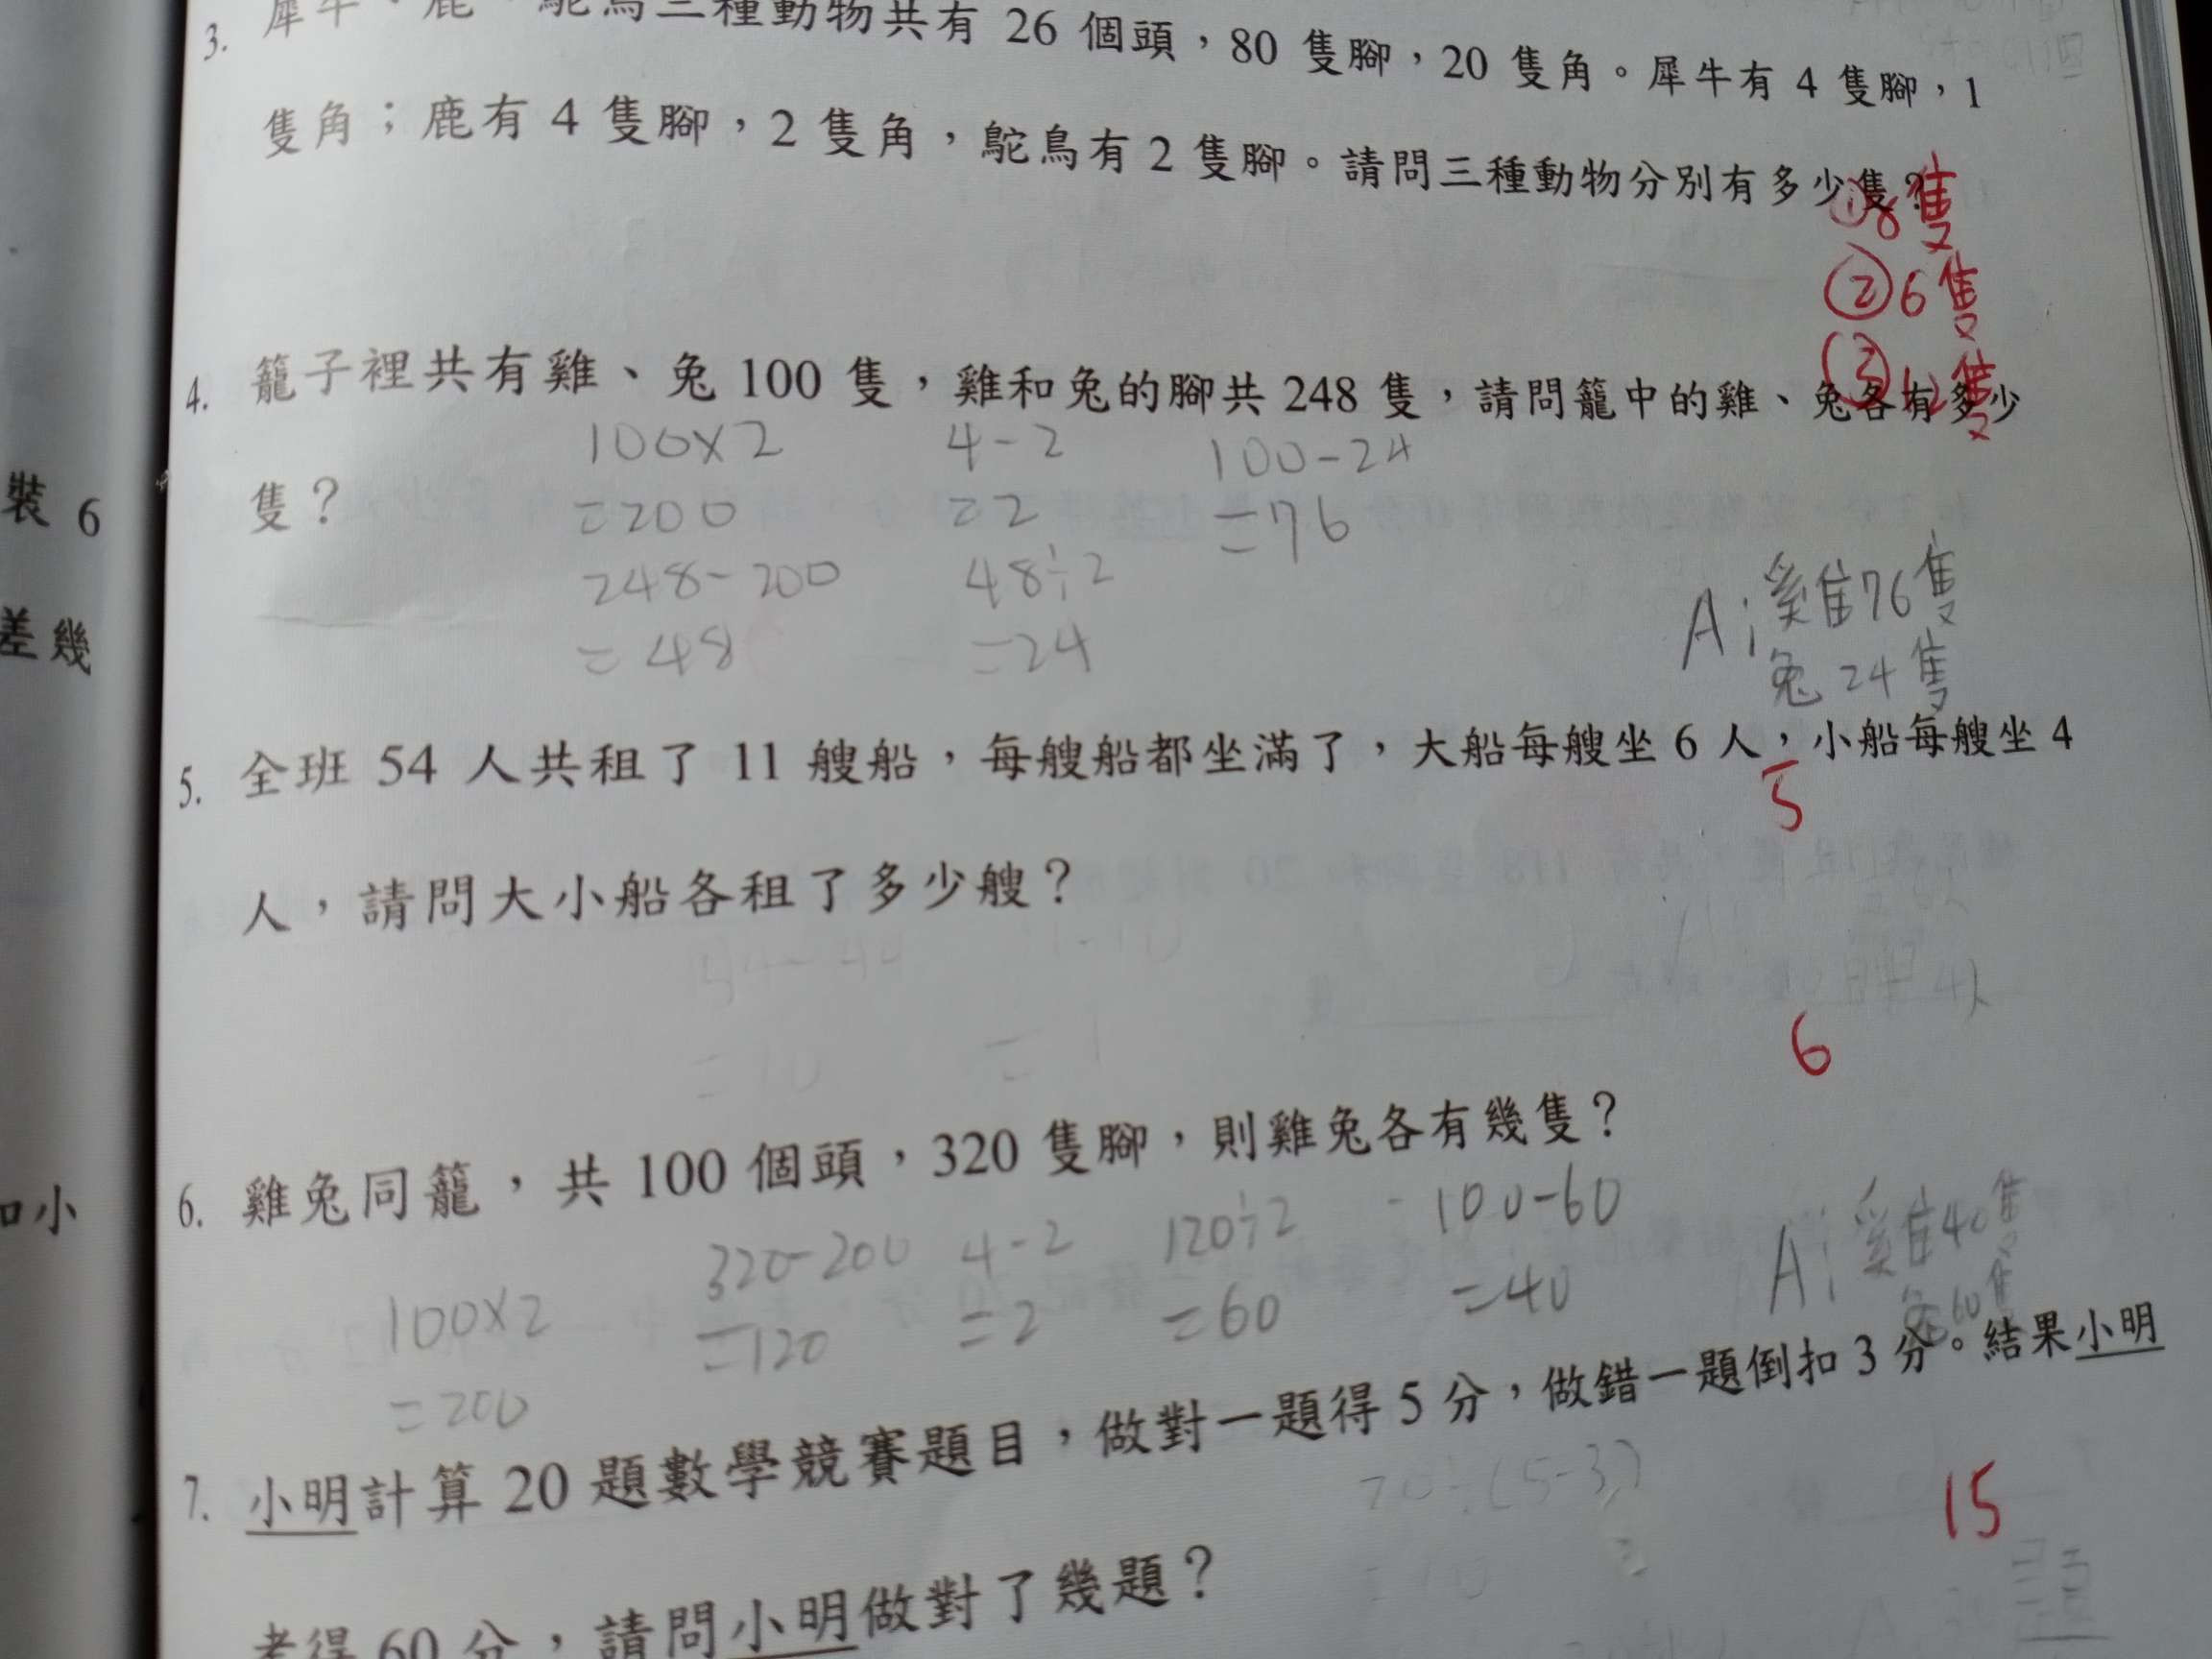 3. 犀牛、鹿、鴕鳥三種動物共有 26 個頭，80 隻腳，20 隻角。犀牛有 4 隻腳，1
隻角；鹿有 4 隻腳，2 隻角，鴕鳥有 2 隻腳。請問三種動物分別有多少隻？
①8隻
②6隻
③12隻
4. 籠子裡共有雞、兔 100 隻，雞和兔的腳共 248 隻，請問籠中的雞、兔各有多少
隻？
100×2
=200
248-200
=48
4-2
=2
48÷2
=24
100-24
=76
A：雞76隻
兔24隻
裝 6
差幾
5. 全班 54 人共租了 11 艘船，每艘船都坐滿了，大船每艘坐 6 人，小船每艘坐 4
人，請問大小船各租了多少艘？
5
6
6. 雞兔同籠，共 100 個頭，320 隻腳，則雞兔各有幾隻？
100×2
=200
320-200
=120
4-2
=2
120÷2
=60
100-60
=40
A：雞40隻
兔60隻
和小
7. 小明計算 20 題數學競賽題目，做對一題得 5 分，做錯一題倒扣 3 分。結果小明
考得 60 分，請問小明做對了幾題？
15